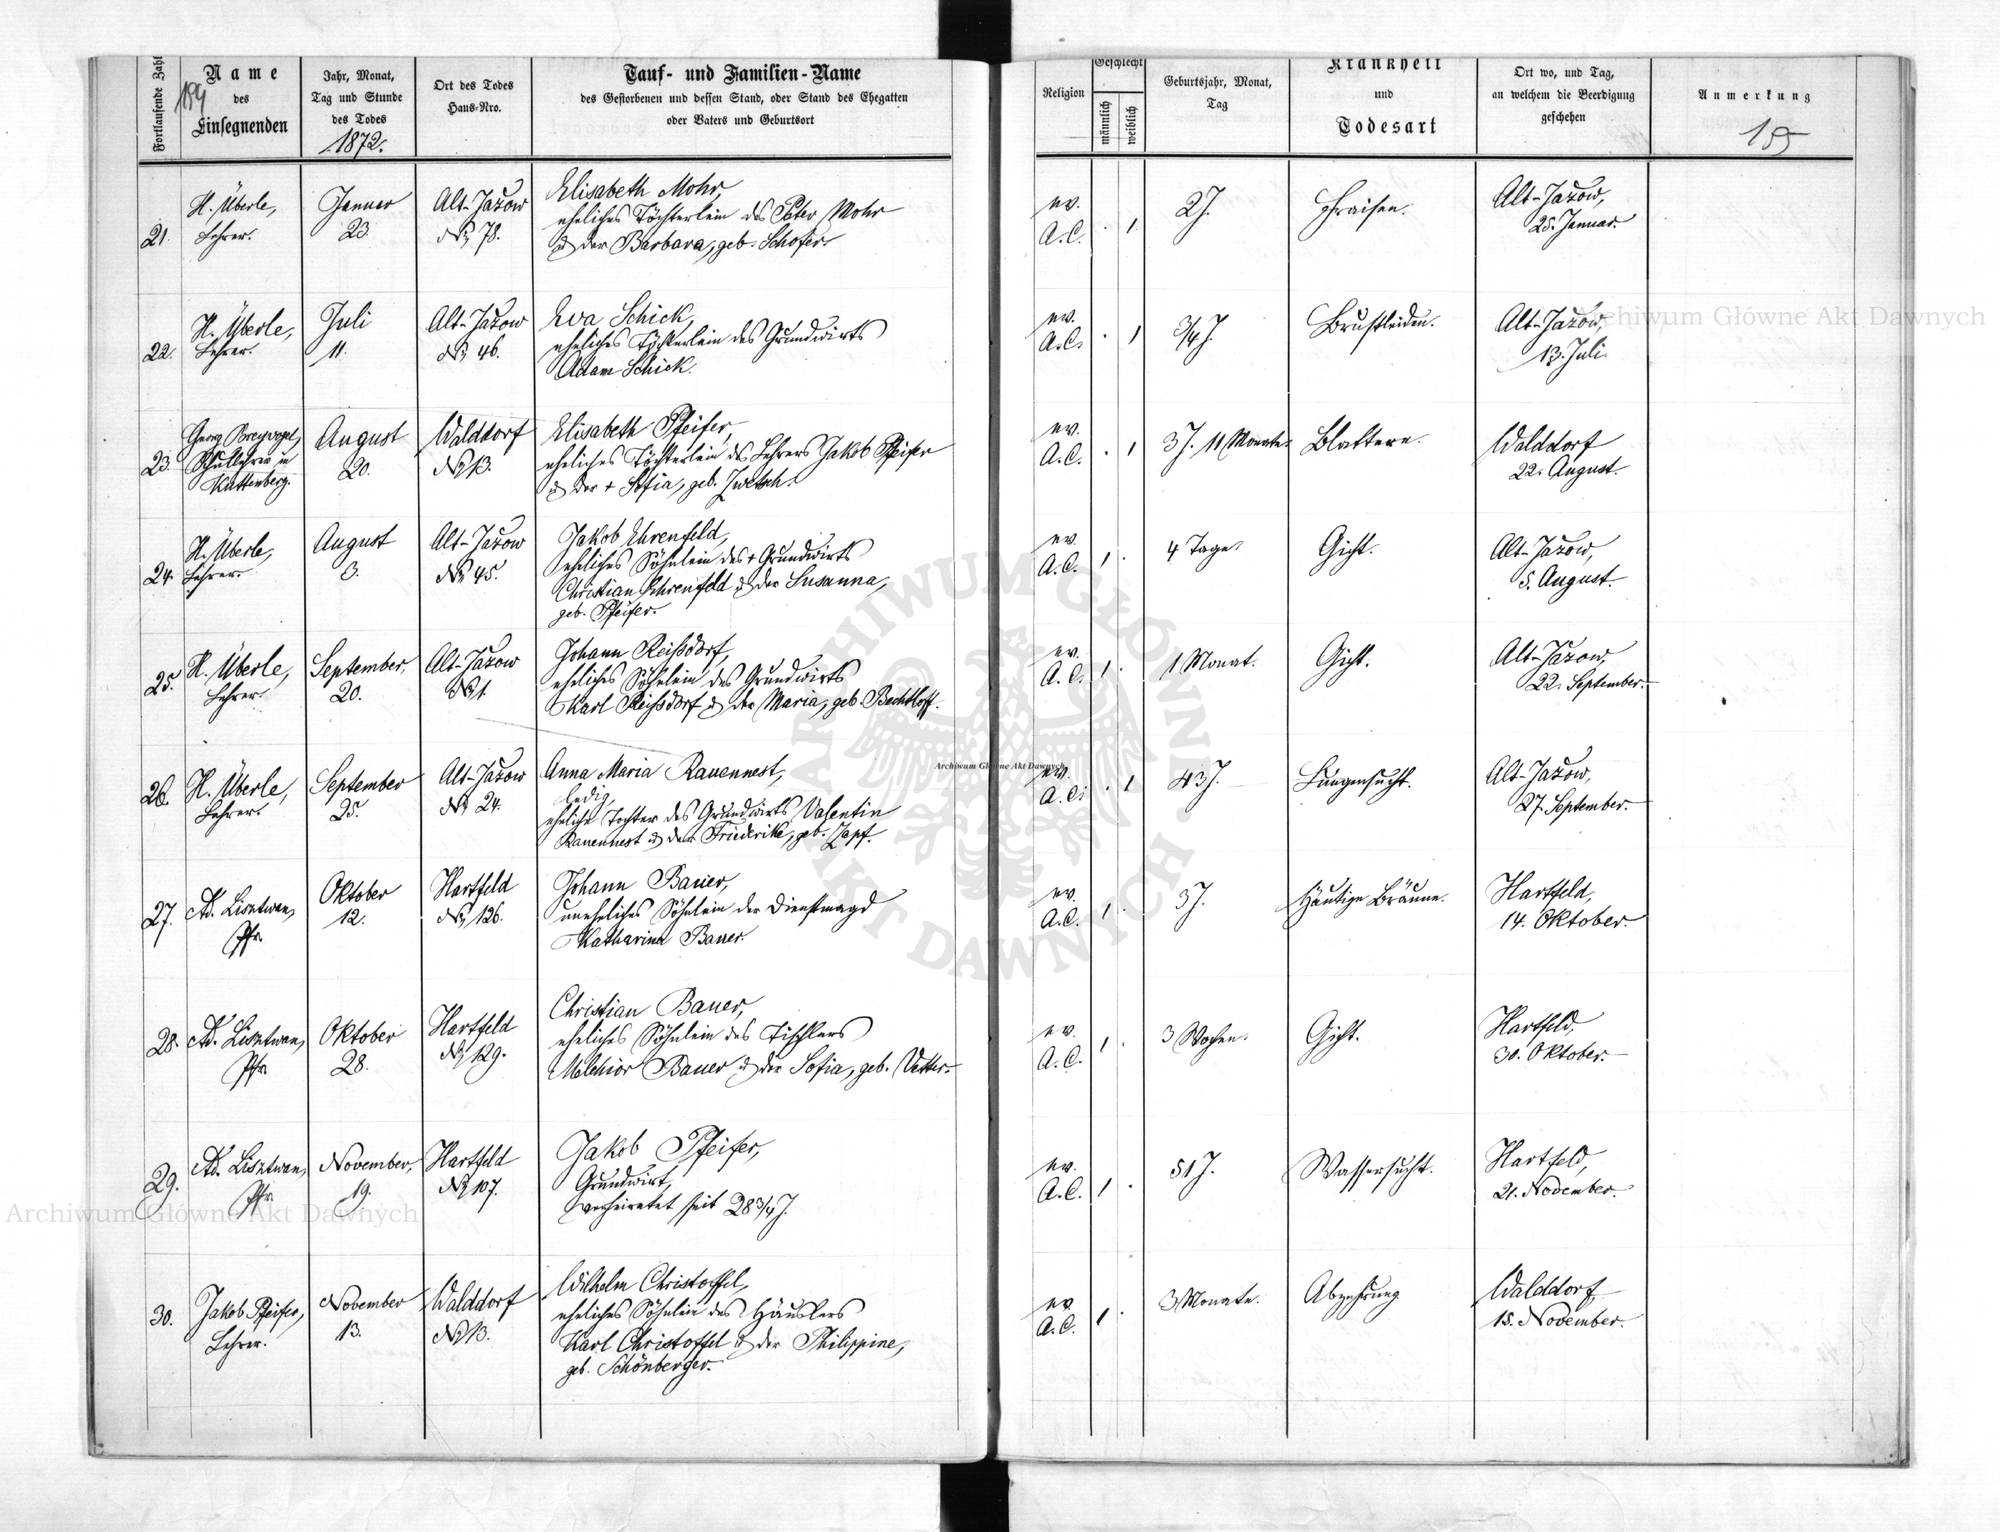 Fortlaufende Zahl
194
Name
des
Einsegnenden
Jahr, Monat,
Tag und Stunde
des Todes
1872.
Ort des Todes
Haus-Nro.
Tauf- und Familien-Name
des Gestorbenen und dessen Stand, oder Stand des Ehegatten
oder Vaters und Geburtsort
Religion
Geschlecht
männlich
weiblich
Geburtsjahr, Monat,
Tag
Krankheit
und
Todesart
Ort wo, und Tag,
an welchem die Beerdigung
geschehen
Anmerkung
21.
H. Überle,
Lehrer.
Januar
23
Alt-Jazow
No 78.
Elisabeth Mohr,
eheliches Töchterlein des Peter Mohr
u der Barbara, geb. Schofer
ev.
A.C.
. 1
2 J.
Fraisen.
Alt-Jazow,
25. Januar.
22.
H. Überle,
Lehrer.
Juli
11.
Alt-Jazow
No 46.
Eva Schick,
eheliches Töchterlein des Grundwirts
Adam Schick.
ev.
A.C.
. 1
3/4 J.
Brustleiden.
Alt-Jazow,
13. Juli.
23.
Georg Breyvogel,
Schullehrer in
Kuttenberg.
August
20.
Walddorf
No 13.
Elisabeth Pfeifer,
eheliches Töchterlein des Lehrers Jakob Pfeifer
u der + Sofia, geb. Zwetsch.
ev.
A.C.
. 1
3 J. 11 Monate.
Blattern.
Walddorf
22. August.
24.
H. Überle,
Lehrer.
August
3.
Alt-Jazow
No 45.
Jakob Ehrenfeld,
eheliches Söhnlein des + Grundwirts
Christian Ehrenfeld u der Susanna,
geb. Pfeifer.
ev.
A.C.
1 .
4 Tage.
Gicht.
Alt-Jazow,
5. August.
25.
H. Überle,
Lehrer.
September,
20.
Alt-Jazow
No 1.
Johann Reißdorf,
eheliches Söhnlein des Grundwirts
Karl Reißdorf u der Maria, geb. Bechtloff.
ev.
A.C.
1 .
1 Monat.
Gicht.
Alt-Jazow,
22. September.
26.
H. Überle,
Lehrer.
September
25.
Alt-Jazow
No 24.
Anna Maria Rauennest,
ledig,
eheliche Tochter des Grundwirts Valentin
Rauennest u der Friederike, geb. Zapf.
ev.
A.C.
. 1
43 J.
Lungensucht.
Alt-Jazow,
27. September.
27.
Ad. Lisztwan,
Pfr.
Oktober
12.
Hartfeld
No 126.
Johann Bauer,
uneheliches Söhnlein der Dienstmagd
Katharina Bauer.
ev.
A.C.
1 .
3 J.
Häutige Bräune.
Hartfeld,
14. Oktober.
28.
Ad. Lisztwan,
Pfr.
Oktober
28.
Hartfeld
No 129.
Christian Bauer,
eheliches Söhnlein des Tischlers
Melchior Bauer u der Sofia, geb. Vetter.
ev.
A.C.
1 .
3 Wochen.
Gicht.
Hartfeld,
30. Oktober.
29.
Ad. Lisztwan,
Pfr.
November,
19.
Hartfeld
No 107.
Jakob Pfeifer,
Grundwirt,
verheiratet seit 28 3/4 J.
ev.
A.C.
1 .
51 J.
Wassersucht.
Hartfeld,
21. November.
30.
Jakob Pfeifer,
Lehrer.
November
13.
Walddorf
No 13.
Wilhelm Christoffel,
eheliches Söhnlein des Häuslers
Karl Christoffel u der Philippine,
geb. Schönberger.
ev.
A.C.
1 .
3 Monate.
Abzehrung
Walddorf,
15. November.
Archiwum Główne Akt Dawnych
Archiwum Główne Akt Dawnych
Archiwum Główne Akt Dawnych
ARCHIWUM GŁÓWNE AKT DAWNYCH